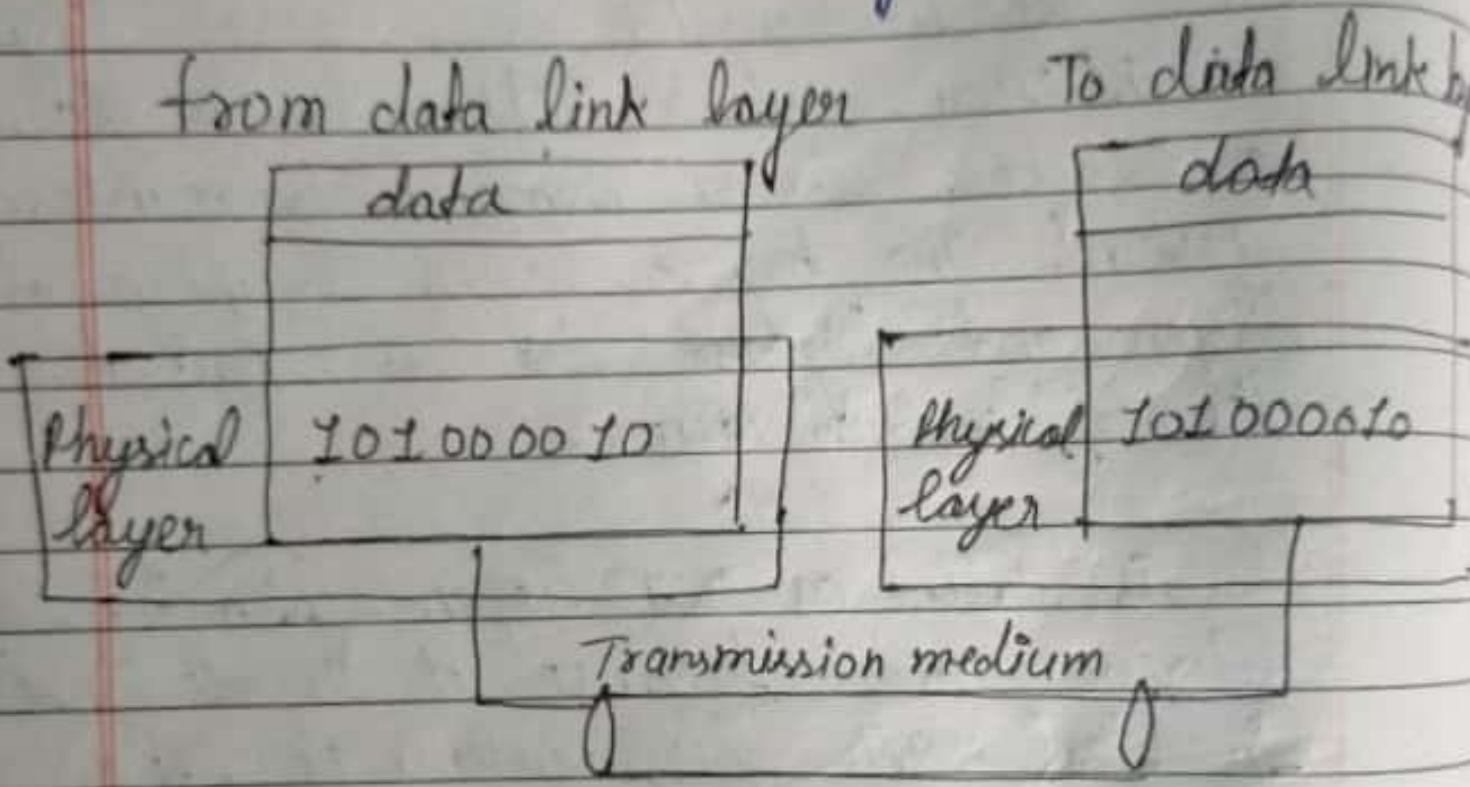 from data link layer
To data link
data
data
Physical
layer
101000010
Physical
layer
101000010
Transmission medium